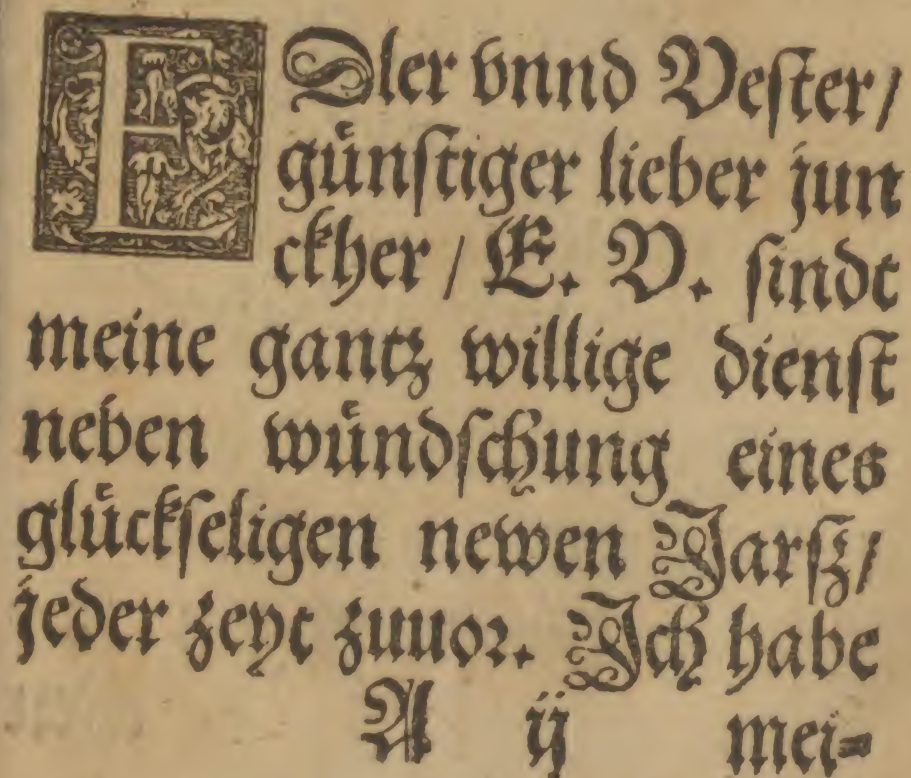 EDler vnnd Vester/
günstiger lieber jun
ckher / E. V. sindt
meine gantz willige dienst
neben wündschung eines
glückseligen newen Jarß/
jeder zeyt zuuor. Ich habe
A ij mei=